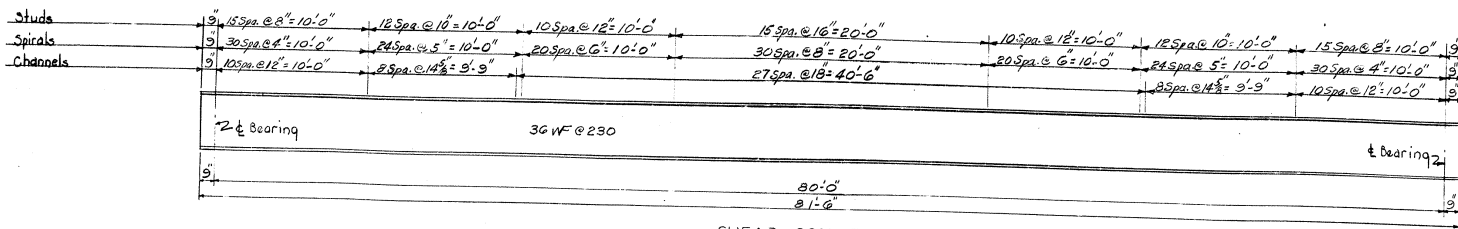 Studs 9" 15 Spa. @ 8" = 10'-0" 12 Spa. @ 10" = 10'-0" 10 Spa. @ 12" = 10'-0" 15 Spa. @ 16" = 20'-0" 10 Spa. @ 12" = 10'-0" 12 Spa. @ 10" = 10'-0" 15 Spa. @ 8" = 10'-0" 9"
Spirals 9" 30 Spa. @ 4" = 10'-0" 24 Spa. @ 5" = 10'-0" 20 Spa. @ 6" = 10'-0" 30 Spa. @ 8" = 20'-0" 20 Spa. @ 6" = 10'-0" 24 Spa. @ 5" = 10'-0" 30 Spa. @ 4" = 10'-0" 9"
Channels 9" 10 Spa. @ 12" = 10'-0" 8 Spa. @ 14 5/8" = 9'-9" 27 Spa. @ 18" = 40'-6" 8 Spa. @ 14 5/8" = 9'-9" 10 Spa. @ 12" = 10'-0" 9"
℄ Bearing 36 WF @ 230 ℄ Bearing
9" 80'-0" 9"
81'-6"